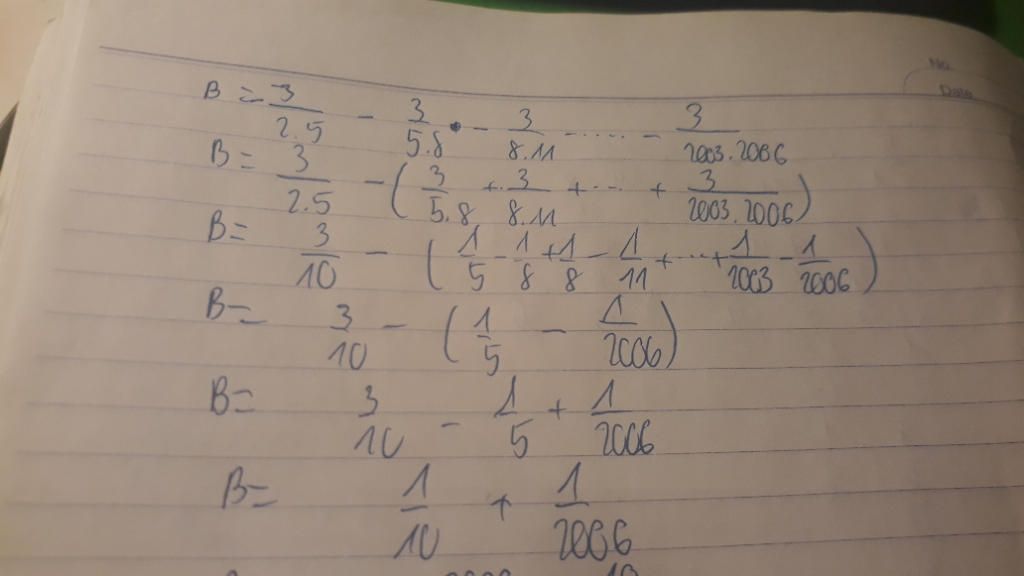 No.
Date
B = 3/2.5 - 3/5.8 - 3/8.11 - ..... - 3/2003.2006
B = 3/2.5 - ( 3/5.8 + 3/8.11 + ... + 3/2003.2006 )
B = 3/10 - ( 1/5 - 1/8 + 1/8 - 1/11 + ... + 1/2003 - 1/2006 )
B = 3/10 - ( 1/5 - 1/2006 )
B = 3/10 - 1/5 + 1/2006
B = 1/10 + 1/2006